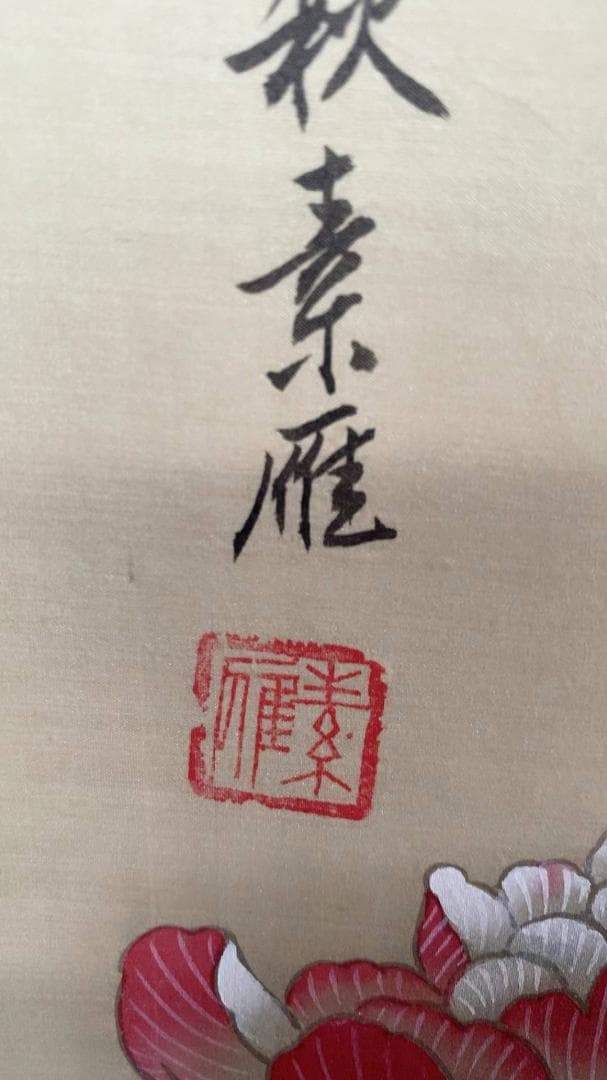 秋素雁
素雁